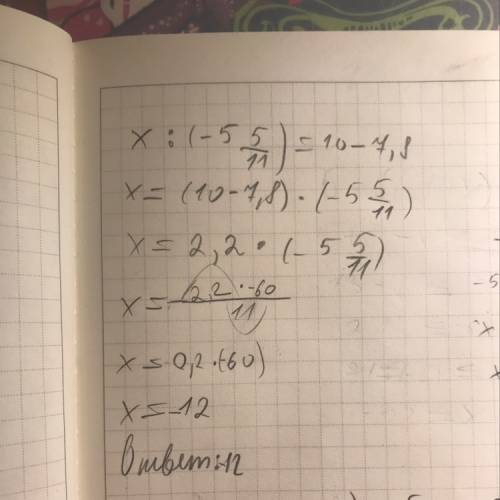 x : (-5 5/11) = 10-7,8
x = (10-7,8) · (-5 5/11)
x = 2,2 · (-5 5/11)
x = 2,2 · -60 / 11
x = 0,2 · (-60)
x = -12
Ответ: -12